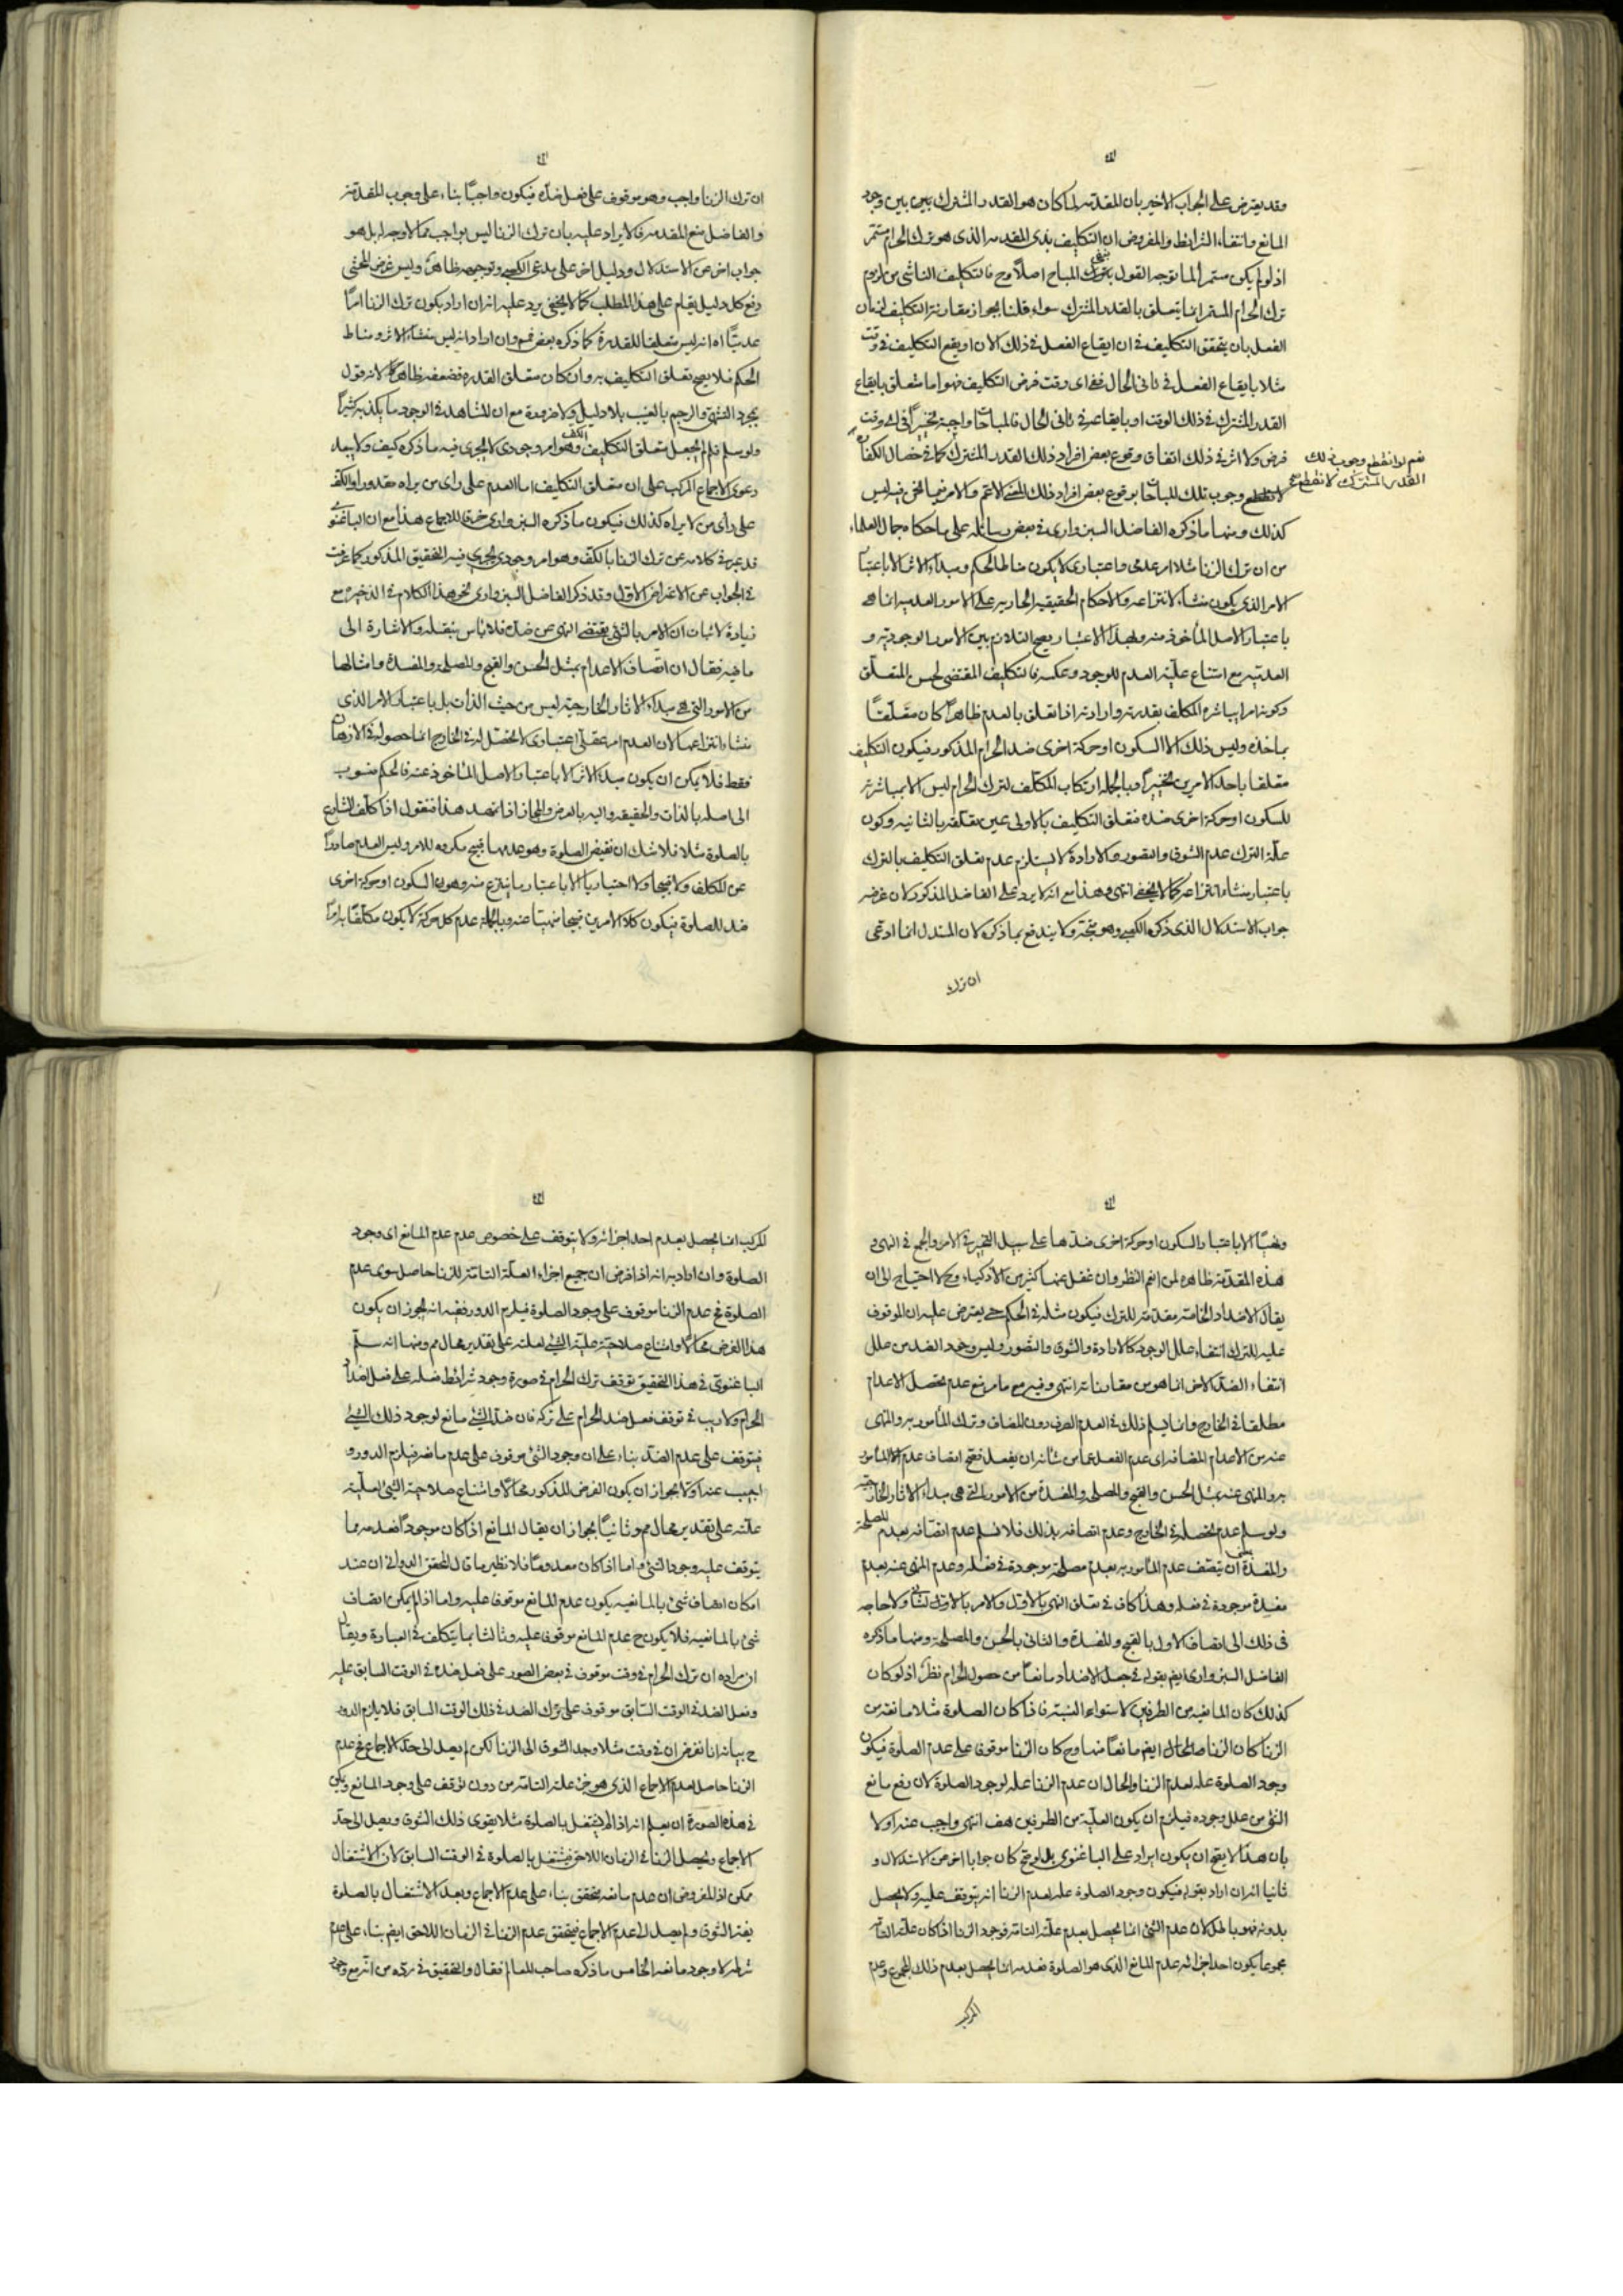 وقد يعترض على الجواب الاخير بان المقدمة لما كان هو القدر المشترك بين بين وجود
المانع وانتفاء الشرائط والمفروض ان التكليف بذى المقدمه الذى هو ترك الحرام مستمر
اذ لو لم يكن مستمرا لما توجه القول بنفى المباح اصلا وح فالتكليف الناشى من لزوم
ترك الحرام المستمر انما يتعلق بالقدر المشترك سواء قلنا بجواز مقارنة التكليف لزمان
الفعل بان يتحقق التكليف فى ان ايقاع الفعل فى ذلك الان او يقع التكليف فى وقت
مثلا بايقاع الفعل فى ثانى الحال ففى اى وقت فرض التكليف فهو اما متعلق بايقاع
القدر المشترك فى ذلك الوقت او بايقاعه فى ثانى الحال فالمباحات واجبة تخييرا فى اى وقت
فرض ولا اثر فى ذلك اتفاق وقوع بعض افراد ذلك القدر المشترك كما فى خصال الكفارة
نعم لو انقطع وجوب ذلك
القدر المشترك لانقطع
وجوب تلك المباحات بوقوع بعض افراد ذلك المعنى الاعم والامر فيما نحن فيه ليس
كذلك ومنها ما ذكره الفاضل السبزوارى فى بعض رسائله على ما حكاه جمال العلماء
من ان ترك الزنا مثلا امر عدمى واعتبارى لا يكون مناط الحكم ومبدء الاثر الا باعتبار
الامر الذى يكون منشاء لانتزاعه والاحكام الحقيقيه الجاريه على الامور العدميه انما هى
باعتبار الاصل المأخوذ منه ولهذا الاعتبار يصح التلازم بين الامور الوجوديه و
العدميه مع امتناع علية العدم للوجود وعكسه فالتكليف المقتضى لحسن المتعلق
وكونه امرا يباشره المكلف بقدرته وارادته اذا تعلق بالعدم ظاهرا كان متعلقا
بماخذه وليس ذلك الا السكون او حركة اخرى ضد الحرام المذكور فيكون التكليف
متعلقا باحد الامرين تخييرا وبالجملة ارتكاب المكلف لترك الحرام ليس الا بمباشرته
للسكون او حركة اخرى ضده فتعلق التكليف بالاولى عين تعلقه بالثانيه وكون
علة الترك عدم الشوق والتصور والارادة لا يستلزم عدم تعلق التكليف بالترك
باعتبار منشاء انتزاعه كما لا يخفى انتهى وهذا مع انه لا يرد على الفاضل المذكور لان غرضه
جواب الاستدلال الذى ذكره الكعبى وهو بتجه ولا يندفع بما ذكره لان المستدل انما ادعى
ان ترك
ان ترك الزنا واجب وهو موقوف على فعل ضده فيكون واجبا بناء على وجوب المقدمة
والفاضل منع المقدمه فالايراد عليه بان ترك الزنا ليس بواجب مما لا وجه له بل هو
جواب اخر عن الاستدلال ودليل اخر على مدعى الكعبى وتوجيهه ظاهر وليس غرض المحشى
دفع كل دليل يقام على هذا المطلب كما لا يخفى يرد عليه انه ان اراد بكون ترك الزنا امرا
عدميا اه انه ليس متعلقا للقدرة كما ذكره بعض فمم وان اراد انه ليس منشاء الاثر ومناط
الحكم فلا يصح تعلق التكليف به وان كان متعلق القدره فضعفه ظاهر لانه قول
بمجرد التشهى والرجم بالغيب بلا دليل ولا ضرورة مع ان المشاهد فى الوجود ما يكذبه كثيرا
ولو سلم فلم لم يجعل متعلق التكليف الكف وهو امر وجودى لا يجرى فيه ما ذكره كيف ولا يبعد
دعوى الاجماع المركب على ان متعلق التكليف اما العدم على راى من يراه مقدورا والكف
على رأى من لا يراه كذلك فيكون ما ذكره السبزوارى خرقا للاجماع هذا مع ان الباغنوى
قد عبر فى كلامه عن ترك الزنا بالكف وهو امر وجودى يجرى فيه التحقيق المذكور كما عرفت
فى الجواب عن الاعتراض الاول وقد ذكر الفاضل السبزوارى نحو هذا الكلام فى الذخيره مع
زيادة لاثبات ان الامر بالشى يقتضى النهى عن ضده فلا باس بنقله والاشارة الى
ما فيه فقال ان اتصاف الاعدام بمثل الحسن والقبح والمصلحة والمفسدة وامثالها
من الامور التى هى مبدء الاثار الخارجية ليس من حيث الذات بل باعتبار الامر الذى
منشاء انتزاعها لان العدم امر عقلى اعتبارى لا تحصل له فى الخارج انما حصوله فى الاذهان
فقط فلا يمكن ان يكون مبدء الاثر الا باعتبار الاصل المأخوذ عنه فالحكم منسوب
الى اصله بالذات والحقيقه واليه بالعرض والمجاز اذا تمهد هذا فنقول اذا كلف الشارع
بالصلوة مثلا فلا شك ان نقيض الصلوة وهو عدمها قبيح مكروه للامر وليس العدم صادرا
عن المكلف ولا قبيحا ولا اختياريا الا باعتبار ما ينتزع منه وهو السكون او حركة اخرى
ضد للصلوة فيكون كلا الامرين قبيحا منهيا عنه وبالجملة عدم كل حركة لا يكون مكلفا به امرا
ونهيا الا باعتبار السكون او حركة اخرى ضدها على سبيل التخيير فى الامر والجمع فى النهى و
هذه المقدمة ظاهرة لمن انعم النظر وان غفل عنها كثير من الاذكياء وح لا احتياج الى ان
يقال الاضداد الخاصه مقدمة للترك فيكون مثله فى الحكم حتى يعترض عليه ان الموقوف
عليه للترك انتفاء علل الوجود كالارادة والشوق والتصور وليس وجود الضد من علل
انتفاء الضد الاخر انما هو من مقارناته انتهى وفيه مع ما مر منع عدم تحصل الاعدام
مطلقا فى الخارج وانما يسلم ذلك فى العدم الصرف دون المضاف وترك المأمور به والمنهى
عنه من الاعدام المضافه اى عدم الفعل عما من شأنه ان يفعل فصح اتصاف عدم المأمور
به والمنهى عنه بمثل الحسن والقبح والمصلحة والمفسدة من الامور التى هى مبدء الاثار الخارجية
ولو سلم عدم تحصله فى الخارج وعدم اتصافه بذلك فلا نسلم عدم اتصافه بعدم المصلحة
والمفسدة يتصف عدم المأمور به بعدم مصلحة موجودة فى فعله وعدم المنهى عنه بعدم
مفسدة موجودة فى فعله وهذا كاف فى تعلق النهى بالاول والامر بالثانى ولا حاجه
فى ذلك الى اتصاف الاول بالقبح والمفسدة والثانى بالحسن والمصلحة ومنها ما ذكره
الفاضل السبزوارى ايضم بقوله فى جعل الاضداد مانعا من حصول الحرام نظر اذ لو كان
كذلك كان المانعيه من الطرفين لاستواء النسبة فاذا كان الصلوة مثلا مانعة من
الزنا كان الزنا ايضم مانعا منها وح كان الزنا موقوفا على عدم الصلوة فيكون
وجود الصلوة علة لعدم الزنا والحال ان عدم الزنا علة لوجود الصلوة لان رفع مانع
الشى من علل وجوده فيلزم ان يكون العلية من الطرفين هف انتهى واجيب عنه اولا
بان هذا لا يصح ان يكون ايرادا على الباغنوى بل لو صح كان جوابا اخر من الاستدلال و
ثانيا انه ان اراد بقوله فيكون وجود الصلوة علة لعدم الزنا انه يتوقف عليه ولا يحصل
بدونه فهو بط لان عدم الشى انما يحصل بعدم علته التامه فوجود الزنا اذا كان علته التامه
مجموعا يكون احد اجزائه عدم المانع الذى هو الصلوة فعدمه انما يحصل بعدم ذلك المجموع وعدم
المركب
المركب انما يحصل بعدم احد اجزائه ولا يتوقف على خصوص عدم عدم المانع اى وجود
الصلوة وان اراد به انه اذا فرض ان جميع اجزاء العلة التامة للزنا حاصل سوى عدم
الصلوة فح عدم الزنا موقوف على وجود الصلوة فيلزم الدور ففيه انه يجوز ان يكون
هذا الفرض محالا وامتناع صلاحية علية الشىء لعلته على تقدير محال مم ومنها انه سلم
الباغنوى فى هذا التحقيق توقف ترك الحرام فى صورة وجود شرائط فعله على فعل اضداد
الحرام ولا ريب فى توقف فعل ضد الحرام على تركه فان ضد الشىء مانع لوجود ذلك الشىء
فيتوقف على عدم الضد بناء على ان وجود الشى موقوف على عدم مانعه فيلزم الدور و
اجيب عنه اولا بجواز ان يكون الفرض المذكور محالا وامتناع صلاحية الشى لعلية
علته على تقدير محال مم وثانيا بجواز ان يقال المانع اذا كان موجودا فعدمه مما
يتوقف عليه وجود الشى واما اذا كان معدوما فلا نظير ما قال المحقق الدوانى ان عند
امكان اتصاف شىء بالمانعيه يكون عدم المانع موقوفا عليه واما اذا لم يمكن اتصاف
شىء بالمانعيه فلا يكون ح عدم المانع موقوفا عليه وثالثا بما يتكلف فى العبارة ويقال
ان مراده ان ترك الحرام فى وقت موقوف فى بعض الصور على فعل ضده فى الوقت السابق عليه
وفعل الضد فى الوقت السابق موقوف على ترك الضد فى ذلك الوقت السابق فلا يلزم الدور
ح بيانه انا نفرض ان فى وقت مثلا وجد الشوق الى الزنا لكن لم يصل الى حد الاجماع فح عدم
الزنا حاصل لعدم الاجماع الذى هو جزء علته التامة من دون توقف على وجود المانع ويمكن
فى هذه الصورة ان يعلم انه اذا لم يشتغل بالصلوة مثلا يقوى ذلك الشوق ويصل الى حد
الاجماع ويحصل الزنا فى الزمان اللاحق فيشتغل بالصلوة فى الوقت السابق لان الاشتغال
ممكن اذ المفروض ان عدم مانعه متحقق بناء على عدم الاجماع وبعد الاشتغال بالصلوة
يفتر الشوق ولم يصل الى الاجماع فيتحقق عدم الزنا فى الزمان اللاحق ايضم بناء على عدم
شرطه لا وجود مانعه الخامس ما ذكره صاحب المعالم فقال والتحقيق فى رده من انه مع وجود